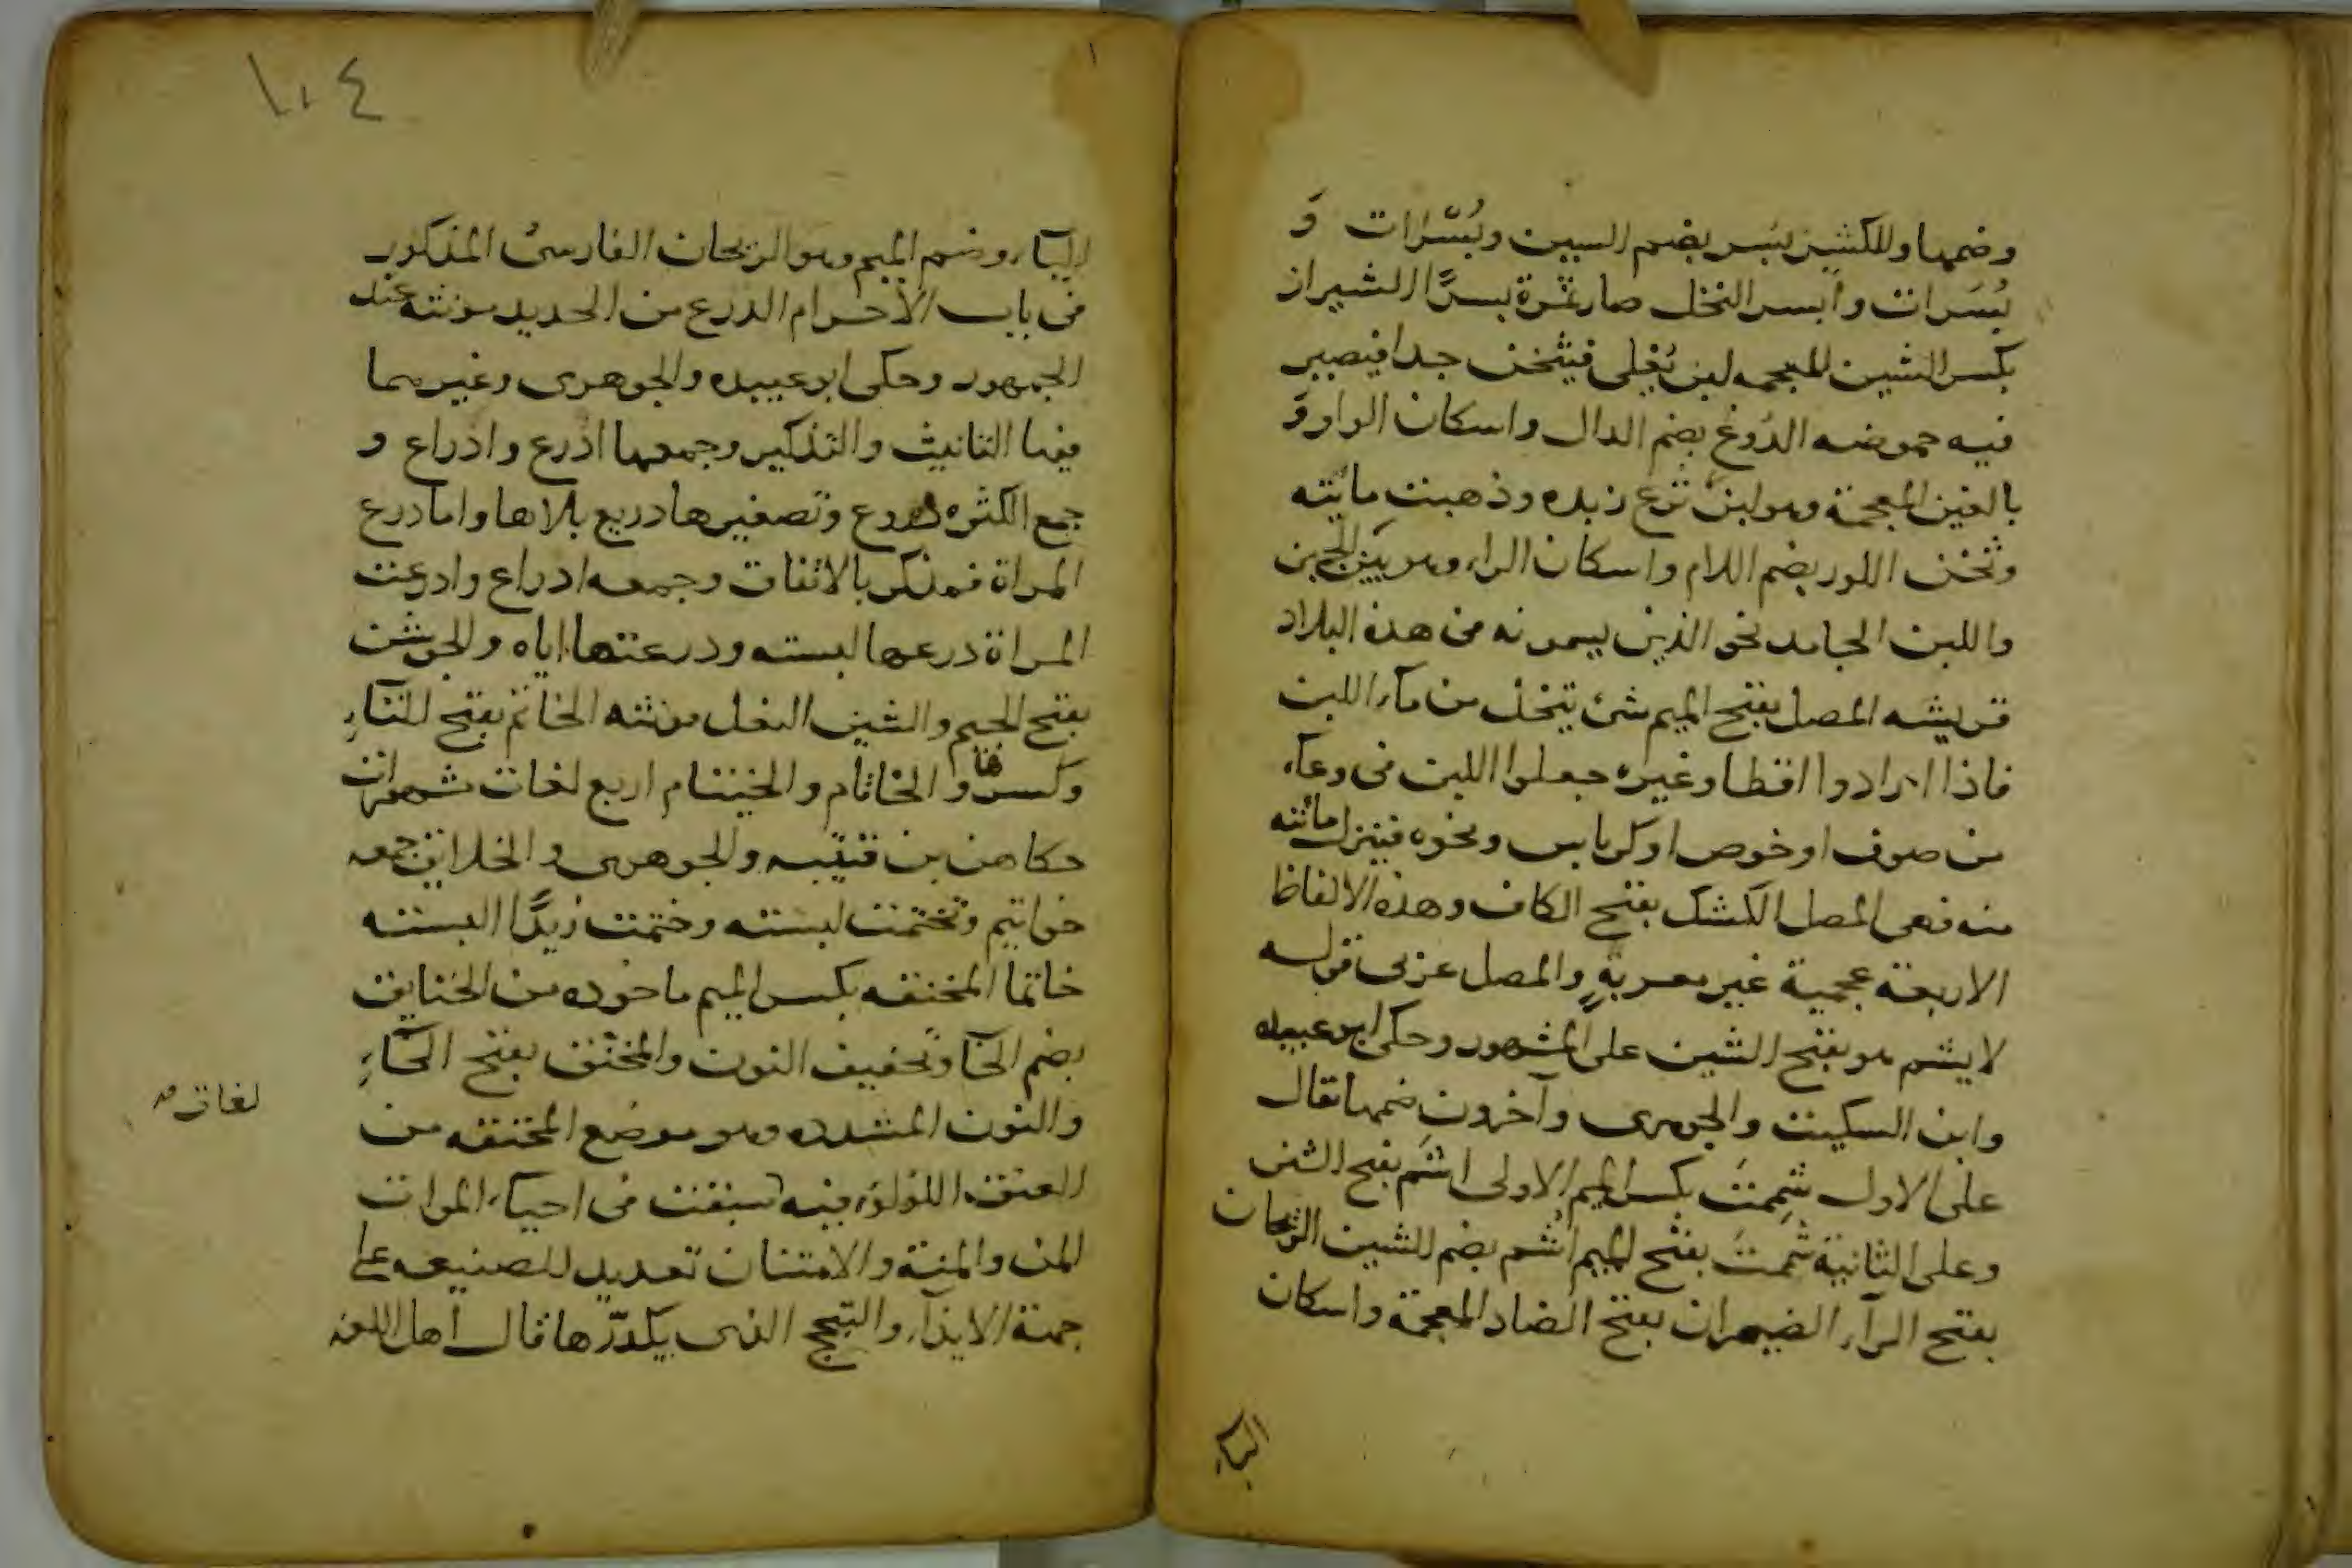 وضمها وللكثير بسر بضم السين وبُسُرات وَ
بُسَرات وابسر النخل صار ثمرة بسرًا الشيراز
بكسر الشين المعجمه لبن يُغلى فيثخن جدا فيصير
فيه حموضه الدُوغ بضم الدال واسكان الواو وَ
بالغين المعجمة وهو لبن نزع زبده وذهبت مائيته
وثخن اللور بضم اللام واسكان الراء وهو بين الجبن
واللبن الجامد نحو الذين يسمونه من هذه البلاد
قريشه المصل بفتح الميم شئ يتخذ من ماء اللبن
فاذا ارادوا اقطا وغيره جعلوا اللبن فى وعاء
من صوف او خوص او كرباس ونحوه فينزل مائيته
منه فهى المصل الكشك بفتح الكاف وهذه الالفاظ
الاربعة عجمية غير معربةٍ والمصل عربى قوله
لا يشم هو بفتح الشين على المشهور وحكى ابو عبيده
وابن السكيت والجوهرى وآخرون ضمها تقال
على الاول شمِمتَ بكسر الميم الاولى اشَم بفتح الشين
وعلى الثانية شَممتَ بفتح الميم اشُم بضم الشين الريحان
بفتح الراء الضيمران بفتح الضاد المعجمة واسكان
الياء
١٠٤
الياء وضم الميم وهو الريحان الفارسئ المذكور
فى باب الاحرام الدرع من الحديد مونثه عند
الجمهور وحكى ابو عبيده والجوهرى وغيرهما
فيها التانيث والتذكير وجمعها ادرع وادراع و
جمع الكثره دروع وتصغيرها دريع بلاها واما درع
المراة فمذكر بالاتفاق وجمعه ادراع وادرعت
المراة درعها لبسته ودرعتها اياه والجوشن
بفتح الجيم والشين النعل مونثه الخاتم بفتح التاءِ
وكسرها والخاتام والخيتام اربع لغات مشهورات
حكاهن بن قتيبه والجوهرى والخلائق جمعه
خواتيم وتختمت لبسته وختمت زيدًا البسته
خاتما المخنقه بكسر الميم ماخوذه من الخناق
بضم الخا وتخفيف النون والمخنّق بفتح الخاءِ
والنون المشدده وهو موضع المخنقه من
العنق اللولؤ فيه سبقت فى احياء الموات
لغات صح
المن والمنة والامتنان تعديد الصنيعه على
جهة الايذاء والتبجح الذى يكدّرها قال اهل اللغه